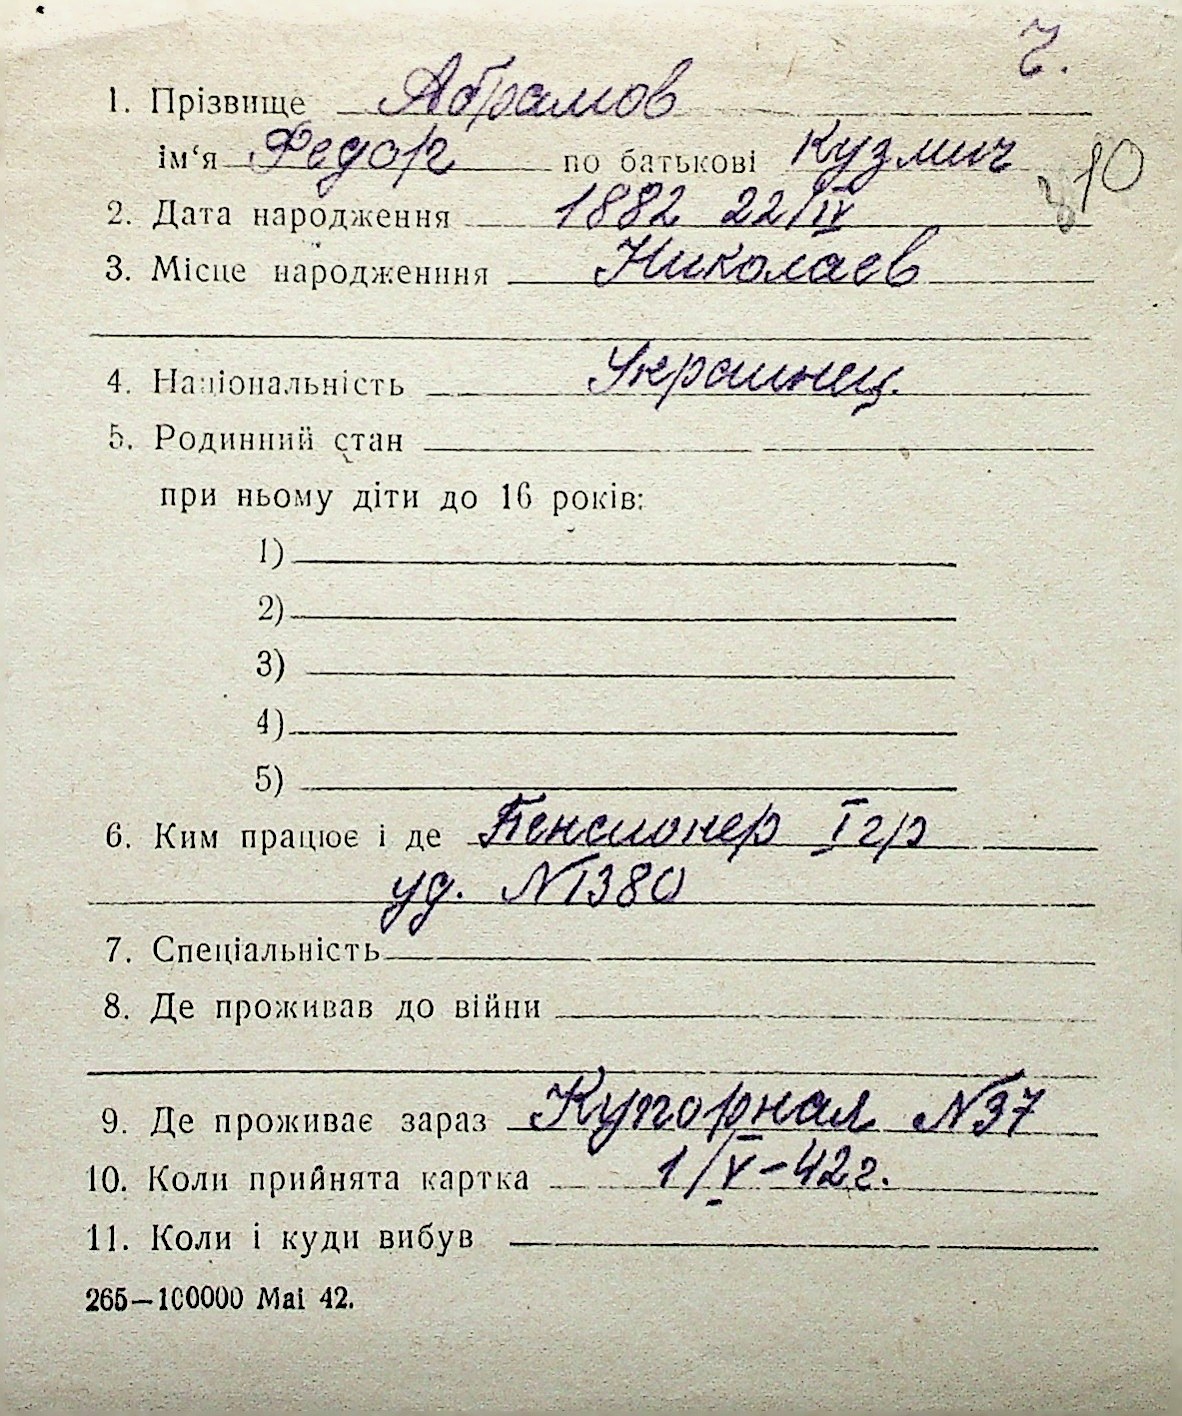 Ч.
1. Прізвище Абрамов
ім‘я Федор по батькові Кузмич
у10
2. Дата народження 1882 22/IV
3. Місце народженння Николаев
4. Національність Украинец.
5. Родинний стан
при ньому діти до 16 років:
1)
2)
3)
4)
5)
6. Ким працює і де Пенсионер I гр
уд. №1380
7. Спеціальність
8. Де проживав до війни
9. Де проживає зараз Купорная №37
10. Коли прийнята картка 1/V-42г.
11. Коли і куди вибув
265—100000 Mai 42.